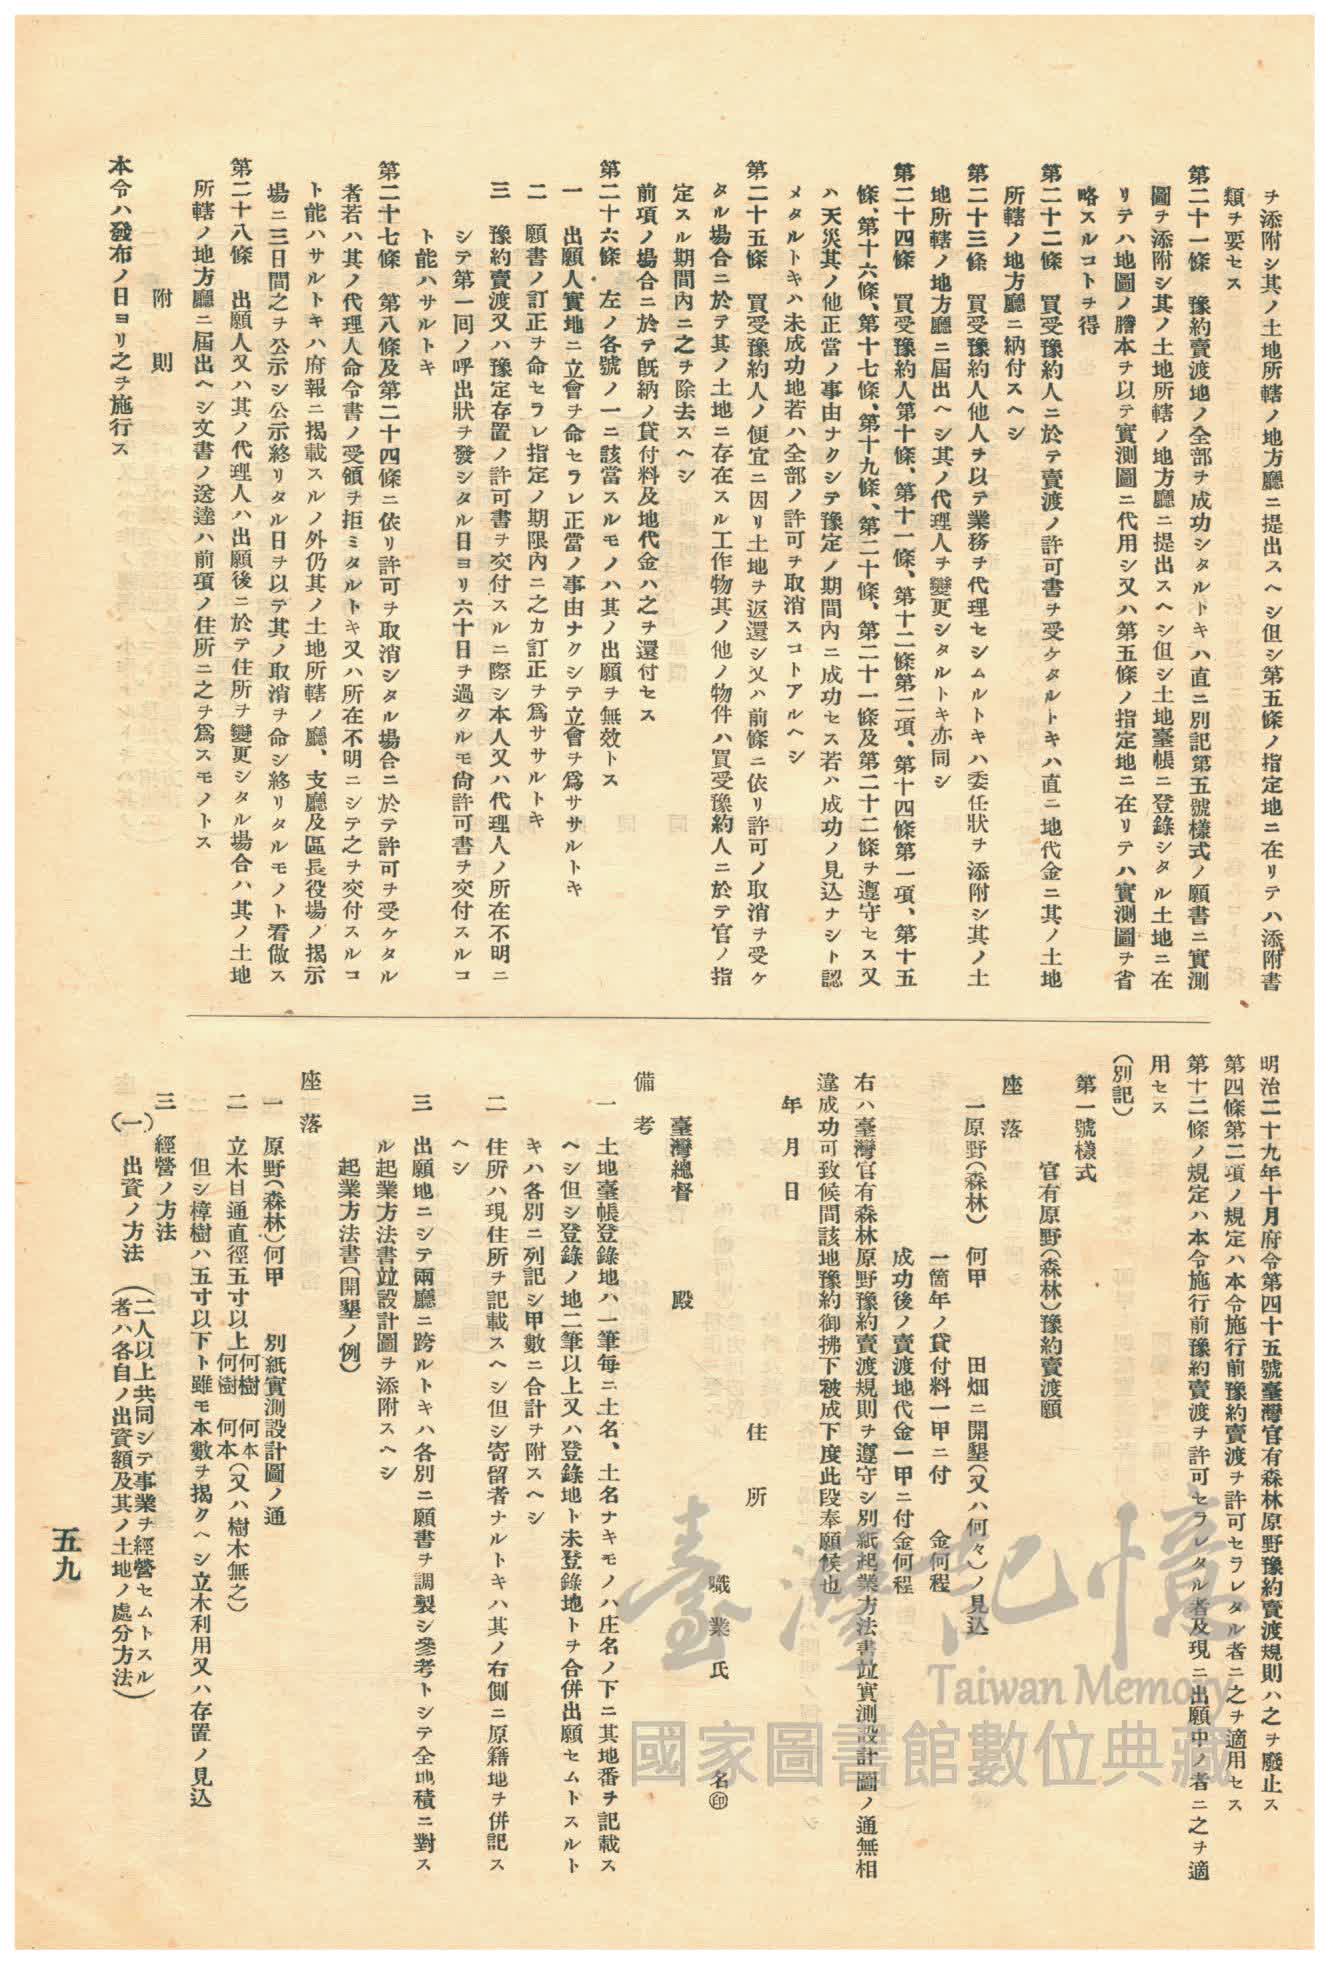 ヲ添附シ其ノ土地所轄ノ地方廳ニ提出スヘシ但シ第五條ノ指定地ニ在リテハ添附書
類ヲ要セス
第二十一條　豫約賣渡地ノ全部ヲ成功シタルトキハ直ニ別記第五號樣式ノ願書ニ實測
圖ヲ添附シ其ノ土地所轄ノ地方廳ニ提出スヘシ但シ土地臺帳ニ登錄シタル土地ニ在
リテハ地圖ノ謄本ヲ以テ實測圖ニ代用シ又ハ第五條ノ指定地ニ在リテハ實測圖ヲ省
略スルコトヲ得
第二十二條　買受豫約人ニ於テ賣渡ノ許可書ヲ受ケタルトキハ直ニ地代金ニ其ノ土地
所轄ノ地方廳ニ納付スヘシ
第二十三條　買受豫約人他人ヲ以テ業務ヲ代理セシムルトキハ委任狀ヲ添附シ其ノ土
地所轄ノ地方廳ニ屆出ヘシ其ノ代理人ヲ變更シタルトキ亦同シ
第二十四條　買受豫約人第十條、第十一條、第十二條第二項、第十四條第一項、第十五
條、第十六條、第十七條、第十九條、第二十條、第二十一條及第二十二條ヲ遵守セス又
ハ天災其ノ他正當ノ事由ナクシテ豫定ノ期間內ニ成功セス若ハ成功ノ見込ナシト認
メタルトキハ未成功地若ハ全部ノ許可ヲ取消スコトアルヘシ
第二十五條　買受豫約人ノ便宜ニ因リ土地ヲ返還シ又ハ前條ニ依リ許可ノ取消ヲ受ケ
タル場合ニ於テ其ノ土地ニ存在スル工作物其ノ他ノ物件ハ買受豫約人ニ於テ官ノ指
定スル期間內ニ之ヲ除去スヘシ
前項ノ場合ニ於テ旣納ノ貸付料及地代金ハ之ヲ還付セス
第二十六條　左ノ各號ノ一ニ該當スルモノハ其ノ出願ヲ無效トス
一　出願人實地ニ立會ヲ命セラレ正當ノ事由ナクシテ立會ヲ爲ササルトキ
二　願書ノ訂正ヲ命セラレ指定ノ期限內ニ之カ訂正ヲ爲ササルトキ
三　豫約賣渡又ハ豫定存置ノ許可書ヲ交付スルニ際シ本人又ハ代理人ノ所在不明ニ
シテ第一回ノ呼出狀ヲ發シタル日ヨリ六十日ヲ過クルモ尙許可書ヲ交付スルコ
ト能ハサルトキ
第二十七條　第八條及第二十四條ニ依リ許可ヲ取消シタル場合ニ於テ許可ヲ受ケタル
者若ハ其ノ代理人命令書ノ受領ヲ拒ミタルトキ又ハ所在不明ニシテ之ヲ交付スルコ
ト能ハサルトキハ府報ニ揭載スルノ外仍其ノ土地所轄ノ廳、支廳及區長役場ノ揭示
場ニ三日間之ヲ公示シ公示終リタル日ヲ以テ其ノ取消ヲ命シ終リタルモノト看做ス
第二十八條　出願人又ハ其ノ代理人ハ出願後ニ於テ住所ヲ變更シタル場合ハ其ノ土地
所轄ノ地方廳ニ屆出ヘシ文書ノ送達ハ前項ノ住所ニ之ヲ爲スモノトス
附　則
本令ハ發布ノ日ヨリ之ヲ施行ス
明治二十九年十月府令第四十五號臺灣官有森林原野豫約賣渡規則ハ之ヲ廢止ス
第四條第二項ノ規定ハ本令施行前豫約賣渡ヲ許可セラレタル者ニ之ヲ適用セス
第十二條ノ規定ハ本令施行前豫約賣渡ヲ許可セラレタル者及現ニ出願中ノ者ニ之ヲ適
用セス
（別記）
第一號樣式
官有原野（森林）豫約賣渡願
座　落
一原野（森林）　何甲　田畑ニ開墾（又ハ何々）ノ見込
一箇年ノ貸付料一甲ニ付　金何程
成功後ノ賣渡地代金一甲ニ付金何程
右ハ臺灣官有森林原野豫約賣渡規則ヲ遵守シ別紙起業方法書竝實測設計圖ノ通無相
違成功可致候間該地豫約御拂下被成下度此段奉願候也
年　月　日
住　所
職　業　氏　名㊞
臺灣總督　殿
備　考
一　土地臺帳登錄地ハ一筆每ニ土名、土名ナキモノハ庄名ノ下ニ其地番ヲ記載ス
ヘシ但シ登錄ノ地二筆以上又ハ登錄地ト未登錄地トヲ合併出願セムトスルト
キハ各別ニ列記シ甲數ニ合計ヲ附スヘシ
二　住所ハ現住所ヲ記載スヘシ但シ寄留者ナルトキハ其ノ右側ニ原籍地ヲ併記ス
ヘシ
三　出願地ニシテ兩廳ニ跨ルトキハ各別ニ願書ヲ調製シ參考トシテ全地積ニ對ス
ル起業方法書竝設計圖ヲ添附スヘシ
起業方法書（開墾ノ例）
座　落
一　原野（森林）何甲　別紙實測設計圖ノ通
二　立木目通直徑五寸以上何樹　何本何樹　何本（又ハ樹木無之）
但シ樟樹ハ五寸以下ト雖モ本數ヲ揭クヘシ立木利用又ハ存置ノ見込
三　經營ノ方法
（一）　出資ノ方法（二人以上共同シテ事業ヲ經營セムトスル
者ハ各自ノ出資額及其ノ土地ノ處分方法）
五九
臺灣記憶
Taiwan Memory
國家圖書館數位典藏